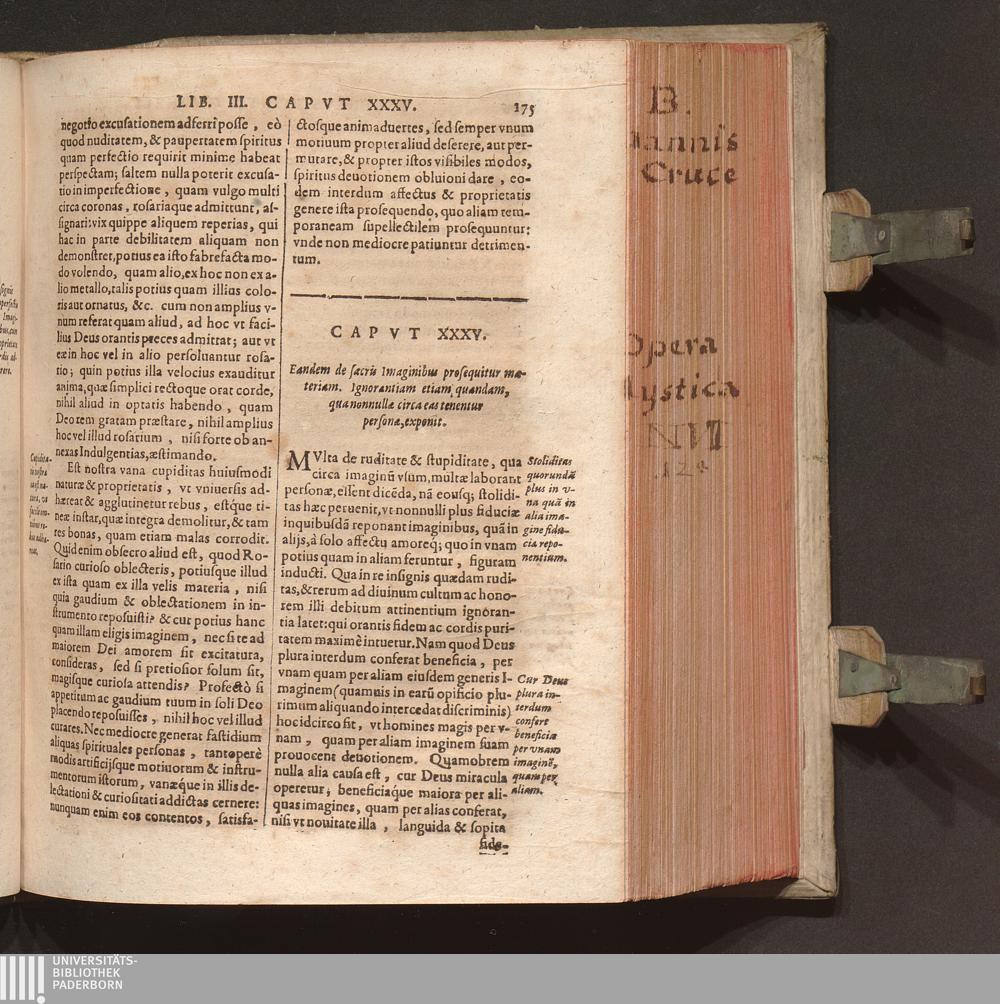 LIB. III. CAPVT XXXV. 175
negotio excusationem adferri posse, eò
quod nuditatem, & paupertatem spiritus
quam perfectio requirit minime habeat
perspectam; saltem nulla poterit excusa-
tio in imperfectione, quam vulgo multi
circa coronas, rosariaque admittunt, as-
signari: vix quippe aliquem reperias, qui
hac in parte debilitatem aliquam non
demonstret, potius ea isto fabrefacta mo-
do volendo, quam alio, ex hoc non ex a-
lio metallo, talis potius quam illius colo-
ris aut ornatus, &c. cum non amplius v-
num referat quam aliud, ad hoc vt faci-
lius Deus orantis preces admittat; aut vt
ex in hoc vel in alio persoluantur rosa-
rio; quin potius illa velocius exauditur
anima, quæ simplici rectoque orat corde,
nihil aliud in optatis habendo, quam
Deo rem gratam præstare, nihil amplius
hoc vel illud rosarium, nisi forte ob an-
nexas Indulgentias, æstimando.
Est nostra vana cupiditas huiusmodi
naturæ & proprietatis, vt vniuersis ad-
hæreat & agglutinetur rebus, estque ti-
neæ instar, quæ integra demolitur, & tam
res bonas, quam etiam malas corrodit.
Quid enim obsecro aliud est, quod Ro-
sario curioso oblecteris, potiusque illud
ex ista quam ex illa velis materia, nisi
quia gaudium & oblectationem in in-
strumento reposuisti? & cur potius hanc
quam illam eligis imaginem, nec si te ad
maiorem Dei amorem sit excitatura,
consideras, sed si pretiosior solum sit,
magisque curiosa attendis? Profectò si
appetitum ac gaudium tuum in soli Deo
placendo reposuisses, nihil hoc vel illud
curares. Nec mediocre generat fastidium
aliquas spirituales personas, tantoperè
modis artificijsque motiuorum & instru-
mentorum istorum, vanæque in illis de-
lectationi & curiositati addictas cernere:
nunquam enim eos contentos, satisfa-
ctosque animaduertes, sed semper vnum
motiuum propter aliud deserere, aut per-
mutare, & propter istos visibiles modos,
spiritus deuotionem obliuioni dare, eo-
dem interdum affectus & proprietatis
genere ista prosequendo, quo aliam tem-
poraneam supellectilem prosequuntur:
vnde non mediocre patiuntur detrimen-
tum.
CAPVT XXXV.
Eandem de sacris Imaginibus prosequitur ma-
teriam. Ignorantiam etiam, quandam,
qua nonnullæ circa eas tenentur
personæ, exponit.
MVlta de ruditate & stupiditate, qua
circa imaginũ vsum, multæ laborant
personæ, essent dicẽda, nã eousq; stolidi-
tas hæc peruenit, vt nonnulli plus fiduciæ
in quibusdã reponant imaginibus, quã in
alijs, à solo affectu amoreq; quo in vnam
potius quam in aliam feruntur, figuram
inducti. Qua in re insignis quædam rudi-
tas, & rerum ad diuinum cultum ac hono-
rem illi debitum attinentium ignoran-
tia latet: qui orantis fidem ac cordis puri-
tatem maximè intuetur. Nam quod Deus
plura interdum conferat beneficia, per
vnam quam per aliam eiusdem generis I-
maginem (quamuis in earũ opificio plu-
rimum aliquando intercedat discriminis)
hoc idcirco fit, vt homines magis per v-
nam, quam per aliam imaginem suam
prouocent deuotionem. Quamobrem
nulla alia causa est, cur Deus miracula
operetur, beneficiaque maiora per ali-
quas imagines, quam per alias conferat,
nisi vt nouitate illa, languida & sopita
fide-
Stoliditas
quorundã
plus in v-
na quã in
alia ima-
gine fidu-
ciæ repo-
nentium.
Cur Deus
plura in-
terdum
confert
beneficia
per vnam
imaginẽ,
quam per
aliam.
B.
annis
Cruce
Opera
ystica
UNIVERSITÄTS-
BIBLIOTHEK
PADERBORN